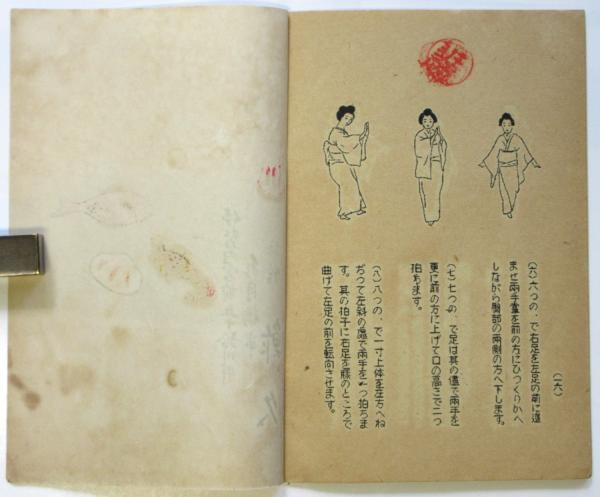 （六）六つの、で右足を左足の前に進
ませ兩手掌を前の方にひつくりかへ
しながら胸部の兩側の方へ下します。
（七）七つの、で足は其の儘で兩手を
更に前の方に上げて口の高さで二つ
拍ちます。
（八）八つの、で一寸上体を左方へね
ぢつて左斜の處で兩手を一つ拍ちま
す。其の拍子に右足を膝のところで
曲げて左足の前を転向させます。
（一六）